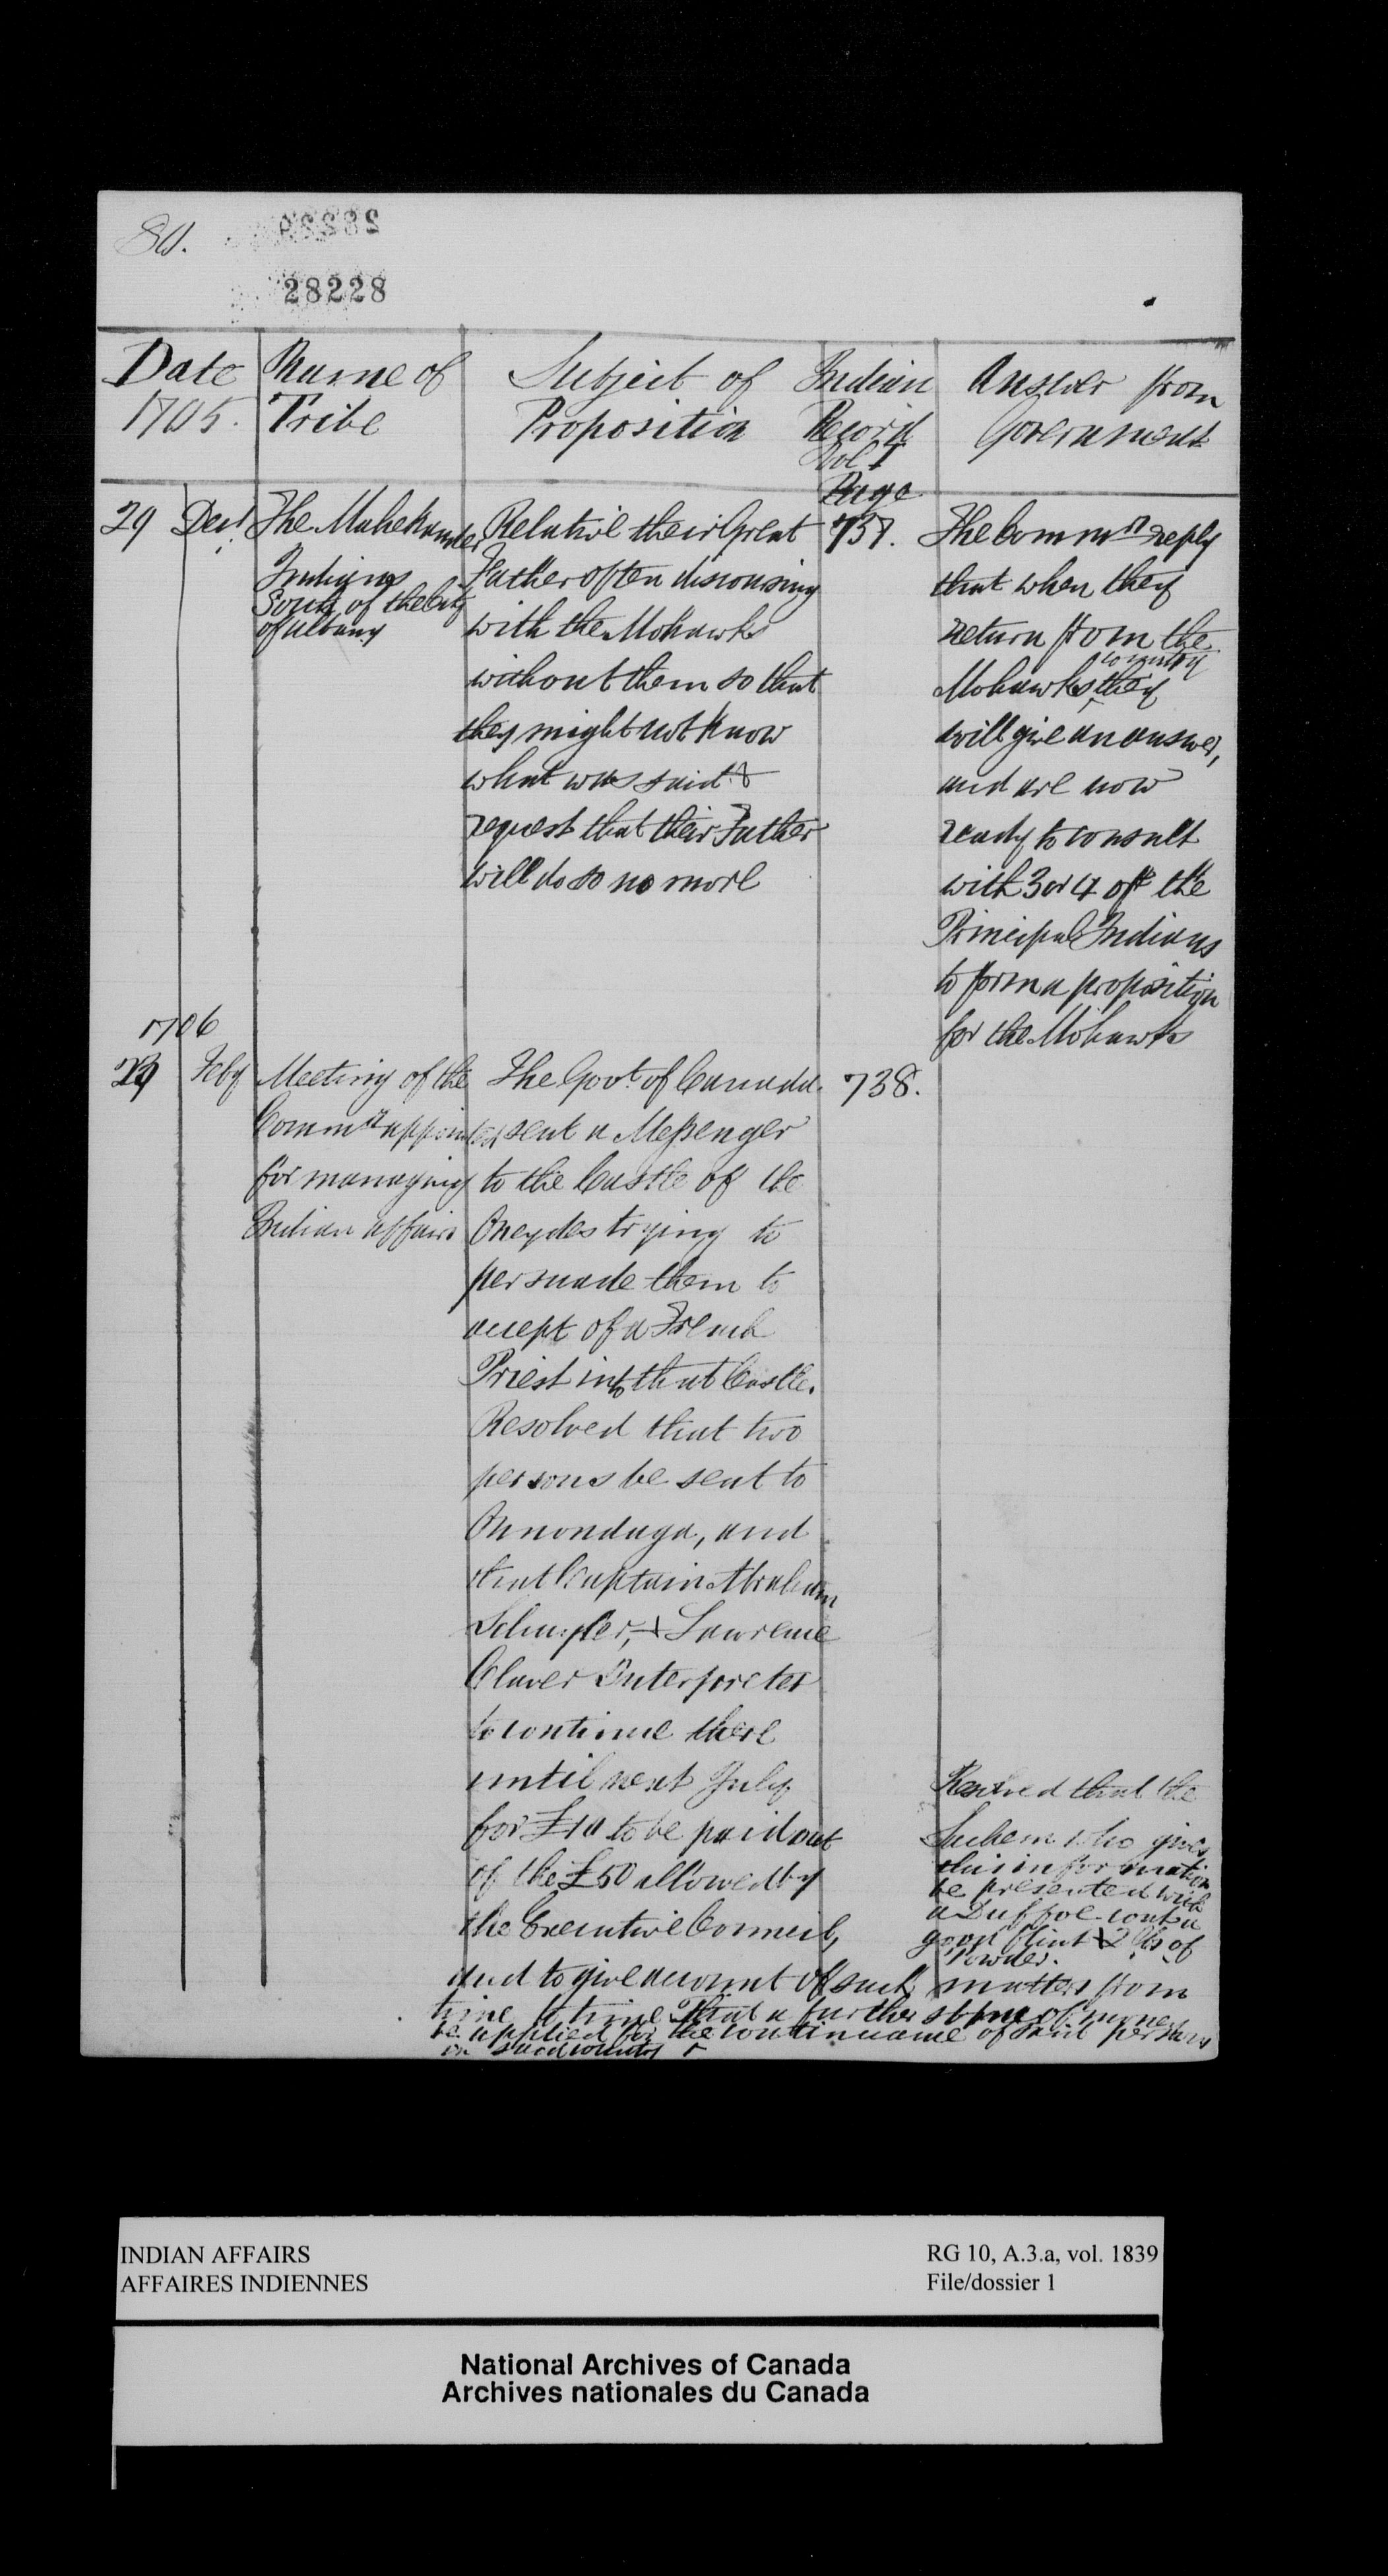 80.
28228
Date
1705.
Name of
Tribe
Subject of
Proposition
Indian
Record
Vol I
Page
Answer from
Government
29 Decr.
The Mahekander
Indians
South of the City
of Albany
Relative their Great
Father often discoursing
with the Mohawks
without them so that
they might not know
what was said &
request that their Father
will do so no more
737.
The Commrs reply
that when they
return from the
country
Mohawks they
will give an answer,
and are now
ready to consult
with 3 or 4 of the
Principal Indians
to form a proposition
for the Mohawks
1706
Feby
Meeting of the
Commrs appointed
for managing
Indian affairs
The Govt. of Canada
sent a Messenger
to the Castle of the
Oneydes trying to
persuade them to
accept of a French
Priest into that Castle.
Resolved that two
persons be sent to
Onnondaga, and
that Captain Abraham
Schuyler, & Lawrence
Claver Interpreter
to continue there
until next July
for £10 to be paid out
of the £50 allowed by
the Executive Council,
and to give account of such matters from
time to time. That a further sume of money
be applied for the continuance of said persons
in said country
738.
Resolved that the
Sachem who gives
this information
be presented with
a Duffoe coat a
good flint & 2 lbs of
Powder.
INDIAN AFFAIRS
AFFAIRES INDIENNES
RG 10, A.3.a, vol. 1839
File/dossier 1
National Archives of Canada
Archives nationales du Canada